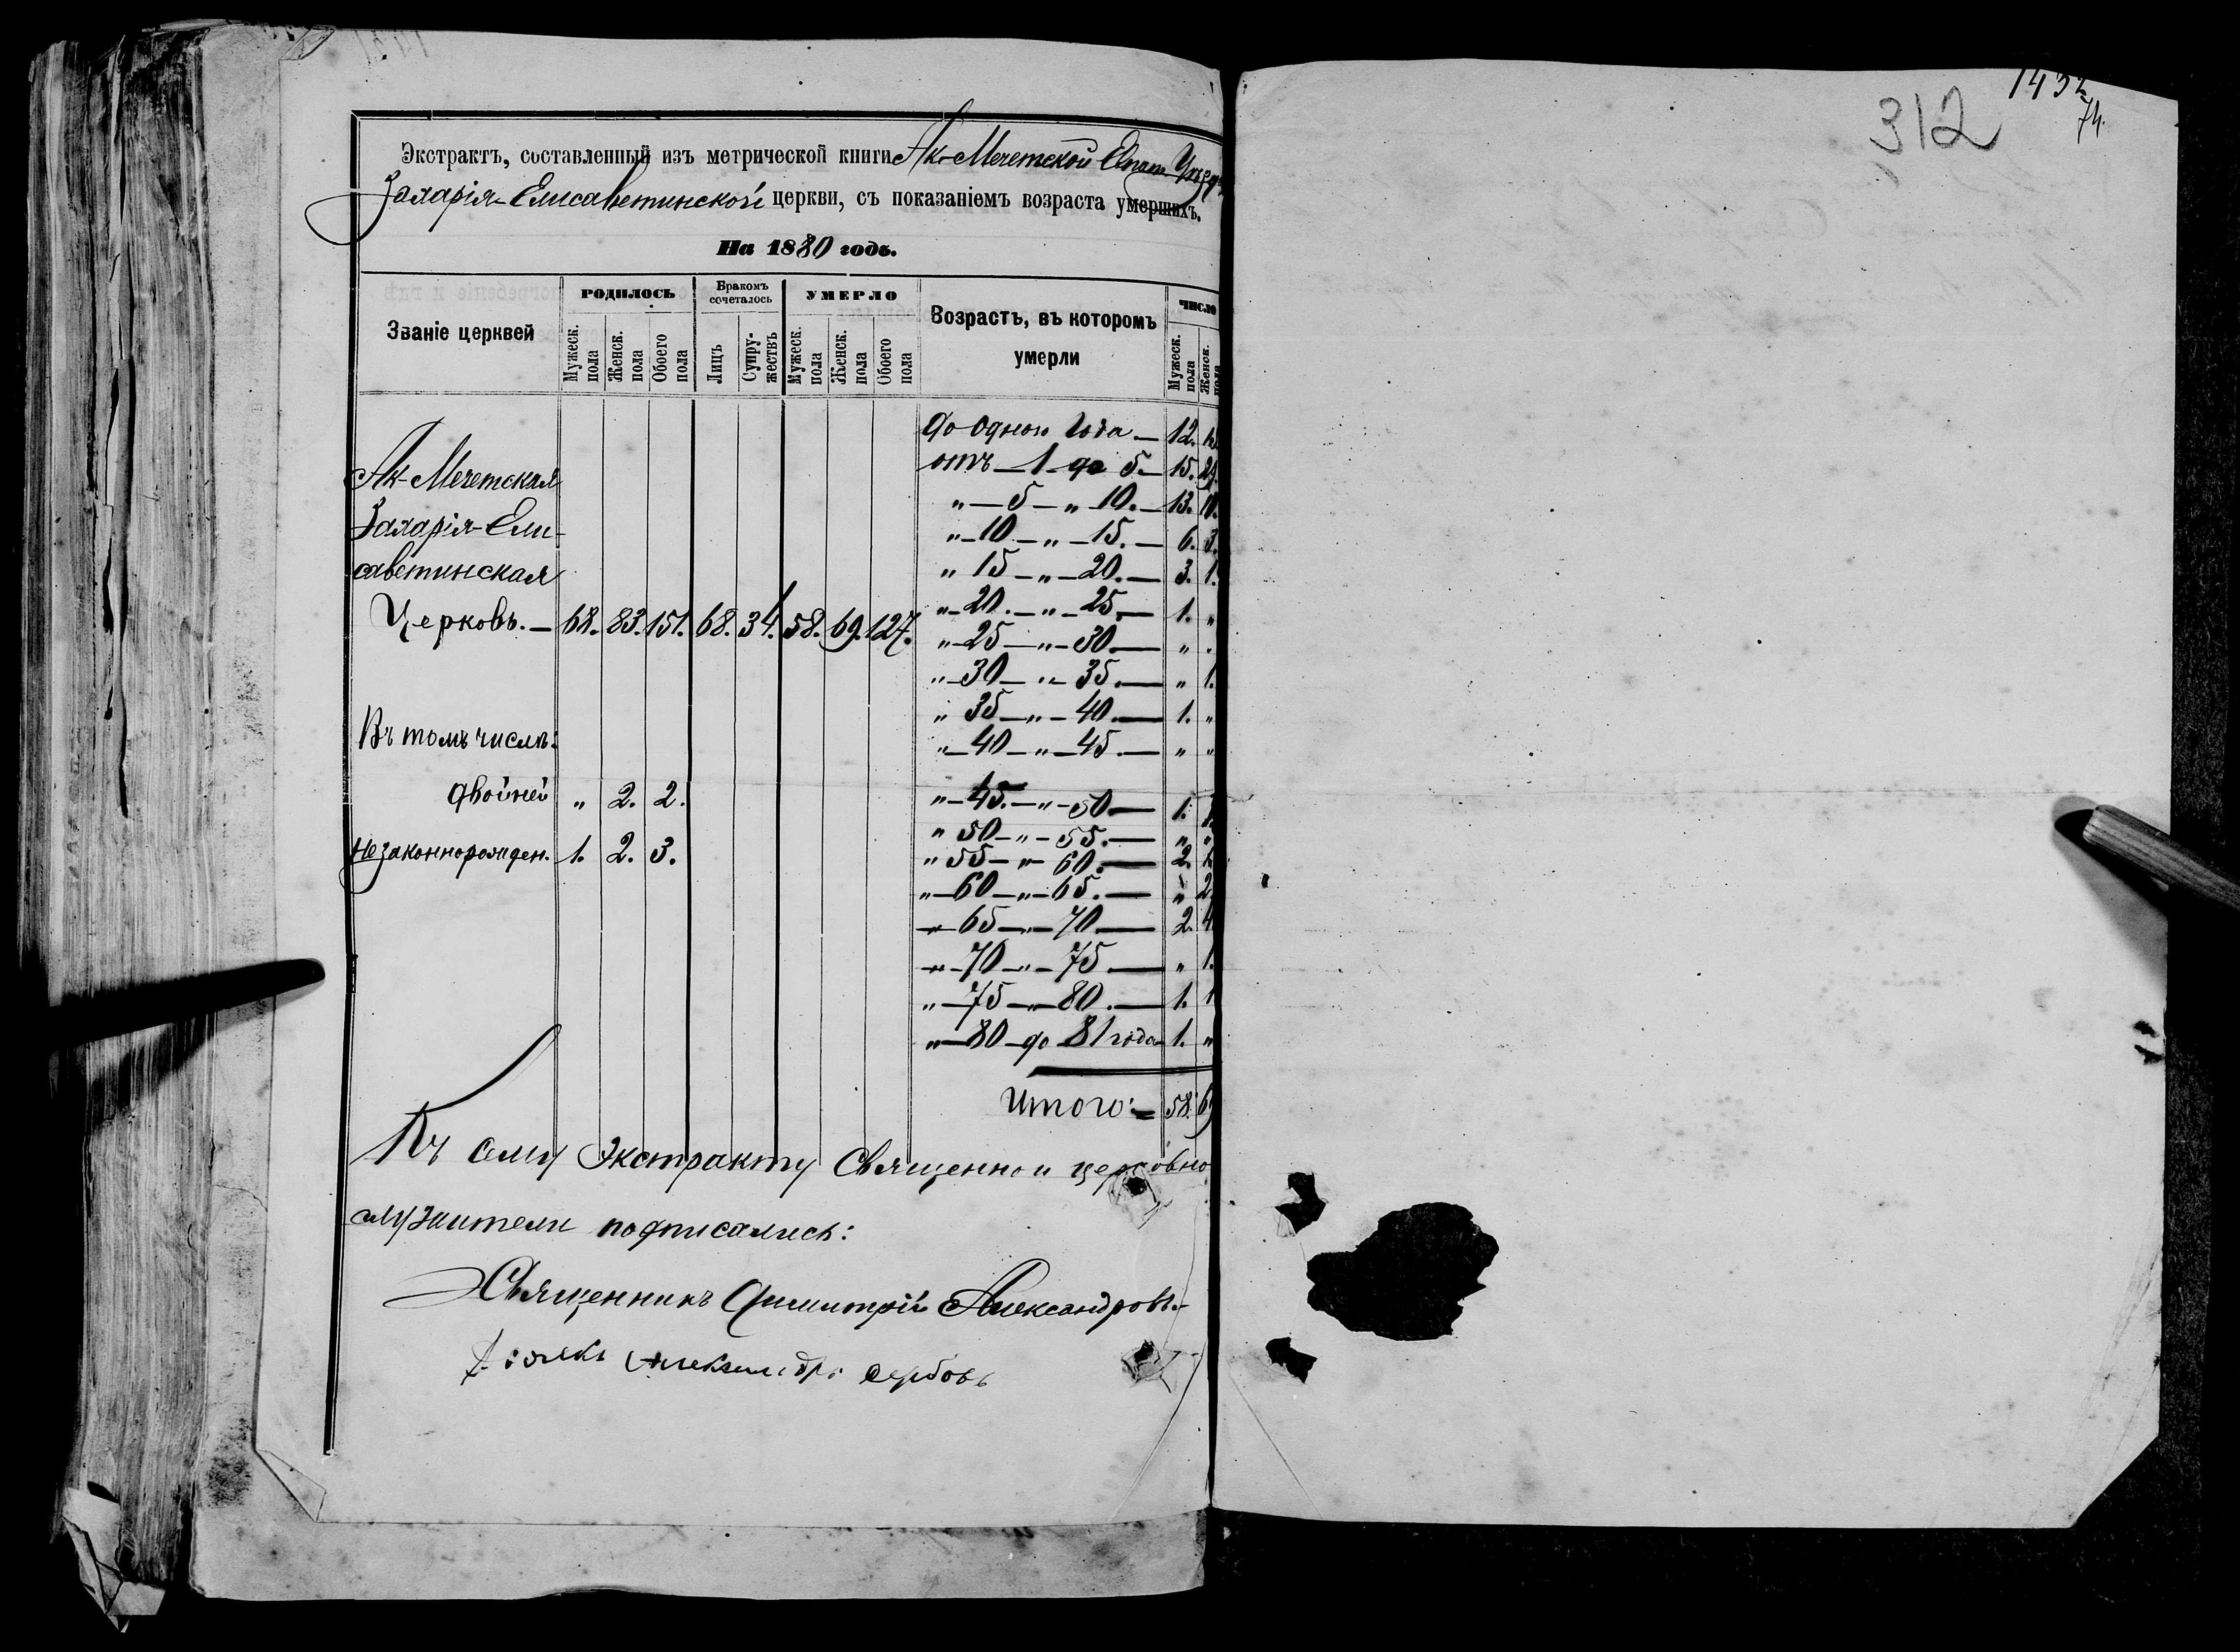 Экстрактъ, составленный изъ метрической книги Ак-Мечетской Евпат. Уѣзда
Захарія-Елисаветинской церкви, съ показаніемъ возраста умершихъ.
На 1880 годъ.
Званіе церквей
РОДИЛОСЬ
Мужеск. пола
Женск. пола
Обоего пола
Бракомъ сочеталось
Лицъ
Супружествъ
УМЕРЛО
Мужеск. пола
Женск. пола
Обоего пола
Возрастъ, въ которомъ умерли
число
Мужеск. пола
Женск. пола
Ак-Мечетская
Захарія-Ели-
саветинская
Церковь. — 68. 83. 151. 68. 34. 58. 69. 127.
Въ томъ числѣ:
двойней „ 2. 2.
незаконнорожден. 1. 2. 3.
До одного года — 12.
отъ — 1 — до 5. — 15. 24.
„ — 5 — „ — 10. — 13. 10.
„ — 10 — „ — 15. — 6. 3.
„ 15 — „ — 20. — 3. 1.
„ — 20. — „ — 25. — 1. „
„ — 25 — „ — 30. — „ „
„ — 30 — „ — 35. — „ 1.
„ 35 — „ — 40. — 1. „
„ — 40 — „ — 45. — „ „
„ — 45. — „ — 50 — 1. 1.
„ 50 — „ — 55. — „ „
„ 55 — „ — 60. — 2.
„ — 60 — „ — 65. — „ 2
„ — 65 — „ — 70 — 2. 4
„ — 70 — „ — 75 — „ 1.
„ — 75 — „ — 80. — 1. 1
„ — 80 — до 81 года 1. „
Итого: = 58. 69
Къ сему Экстракту Священно и церковно
служители подписались:
Священникъ Димитрій Александровъ.
Дьякъ Александръ Сербовъ
312
1432
74.